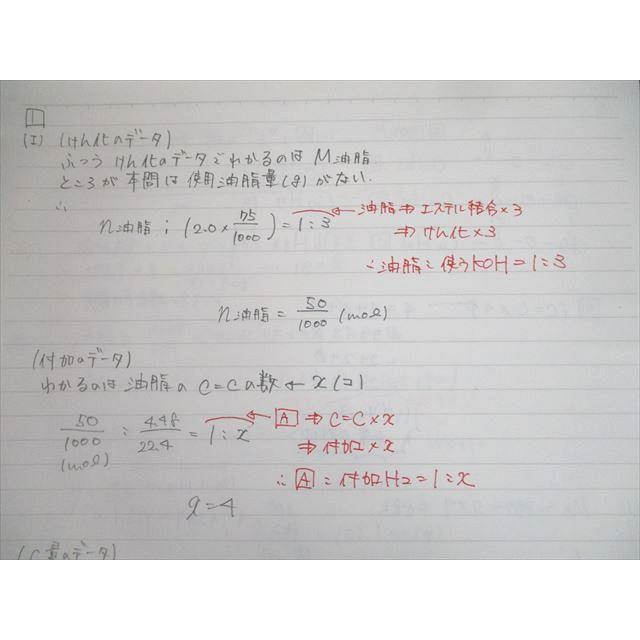 1
(I) (けん化のデータ)
ふつう けん化のデータでわかるのは M油脂
ところが 本問は 使用油脂量(g)がない.
∴
n油脂 : (2.0 × 75/1000) = 1 : 3 ← 油脂 ⇒ エステル結合×3
⇒ けん化×3
∴ 油脂 : 使うKOH = 1 : 3
n油脂 = 50/1000 (mol)
(付加のデータ)
わかるのは 油脂の C=Cの数 ← x(コ)
50/1000 (mol) : 4.48/22.4 = 1 : x ← A ⇒ C=C×x
⇒ 付加×x
∴ A : 付加H2 = 1 : x
x=4
(C量のデータ)